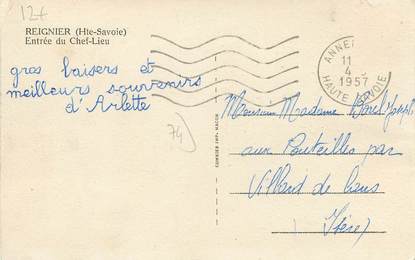 12+
REIGNIER (Hte-Savoie)
Entrée du Chef-Lieu
gros baisers et
meilleurs souvenirs
d'Arlette
74
COMBIER IMP. MACON
11
4
1957
HAUTE SAVOIE
Monsieur Madame Joseph
aux Pouteilles par
Villard de Lans
(Isère)